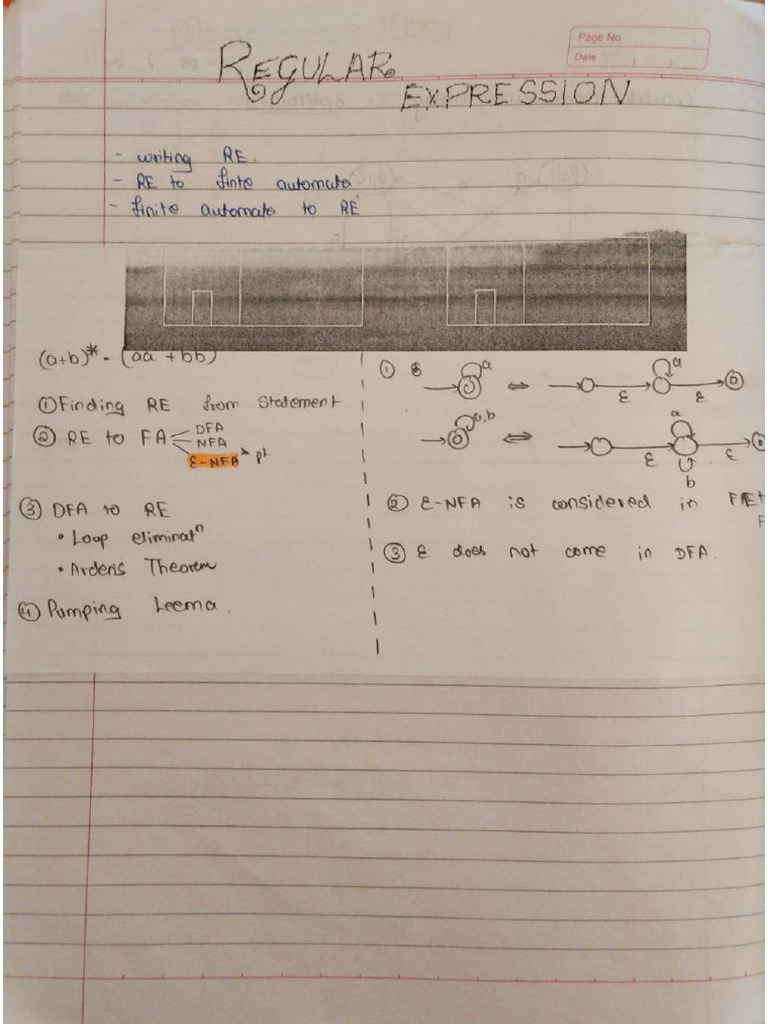 Page No.
Date
REGULAR
EXPRESSION
- writing RE.
- RE to finte automate
- finite automate to RE
(a+b)* - (aa + bb)
① Finding RE from Statement
② RE to FA
DFA
NFA
ε-NFA
③ DFA to RE
• Loop eliminatⁿ
• Ardens Theorem
④ Pumping Leema.
①
a
⇔
a
ε
ε
a,b
⇔
a
ε
ε
b
② ε-NFA is considered in
③ ε does not come in DFA.